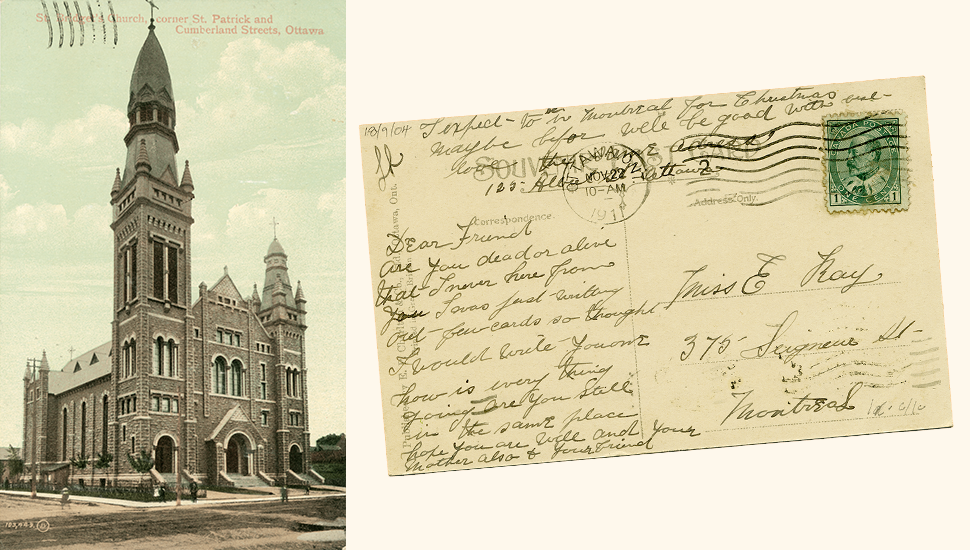 St. Bridget's Church, corner St. Patrick and
Cumberland Streets, Ottawa
103,443
18/9/04
I expect to be in Montreal for Christmas
maybe befor well be good with
this is my adress
123 Albert St. Ottawa
SOUVENIR POST CARD
OTTAWA
NOV 22
10-AM
191
CANADA POSTAGE
1 ONE CENT 1
Correspondence.
Address Only.
Dear Friend
are you dead or alive
that I never here from
you I was just writing
out few cards so thought
I would write you one
how is every thing
going are you still
in the same place
hope you are well and your
mother also & your friend
Miss E Kay
375 Seigneur St
Montreal